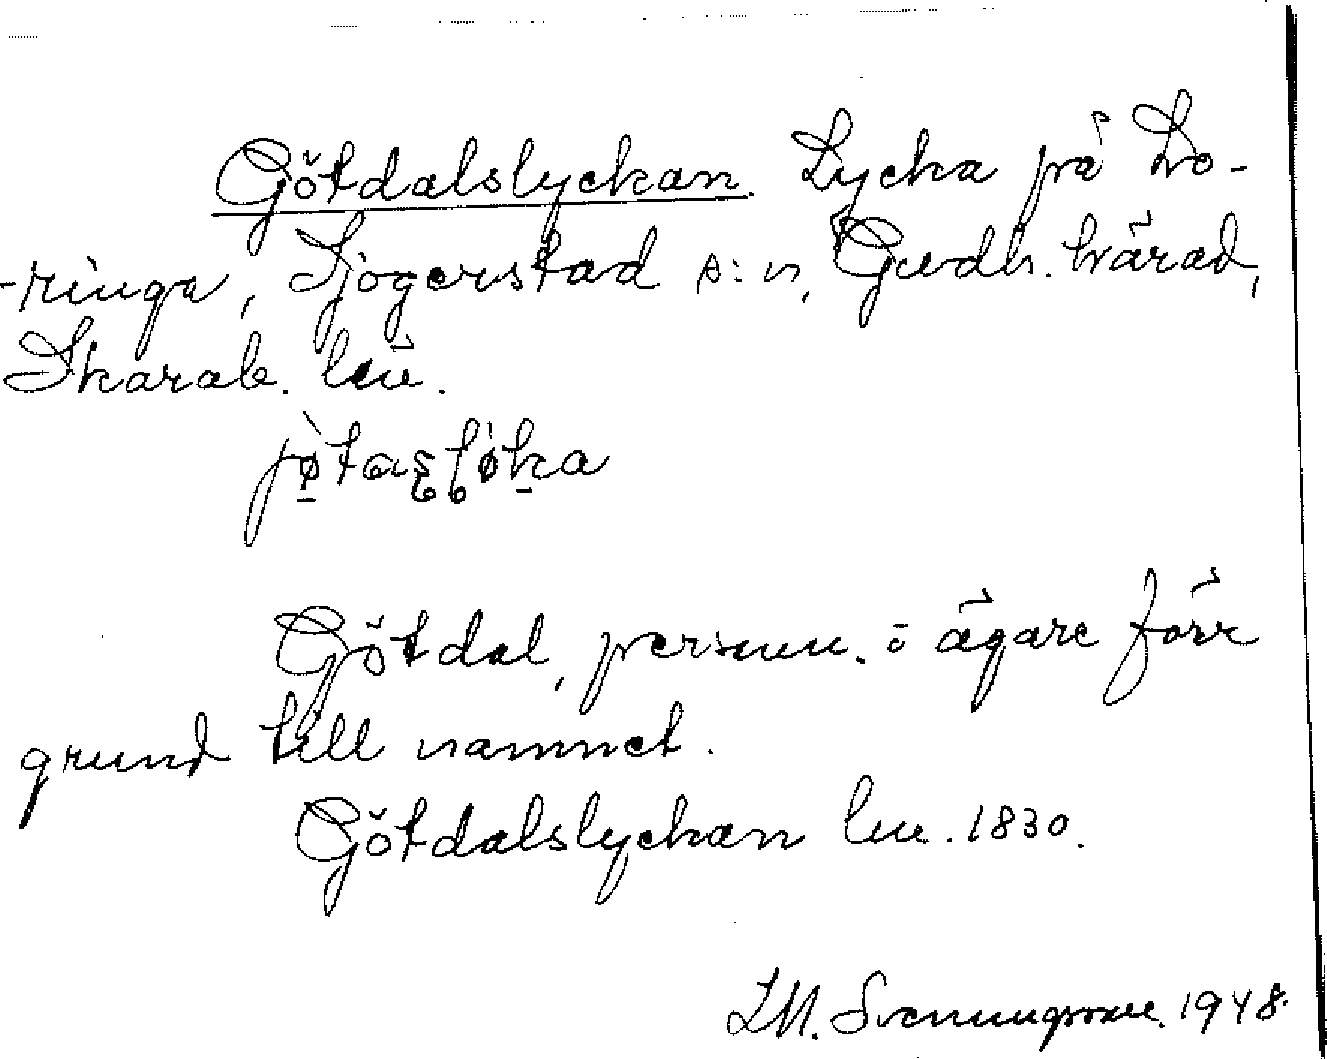 Götdalslyckan. Lycka på Lo-
-ringa, Sjogerstad s:n, Gudh. härad,
Skarab. län.
Götdal, personn. å ägare förr
grund till namnet.
Götdalslyckan lm. 1830.
L.M. Svenungsson. 1948.